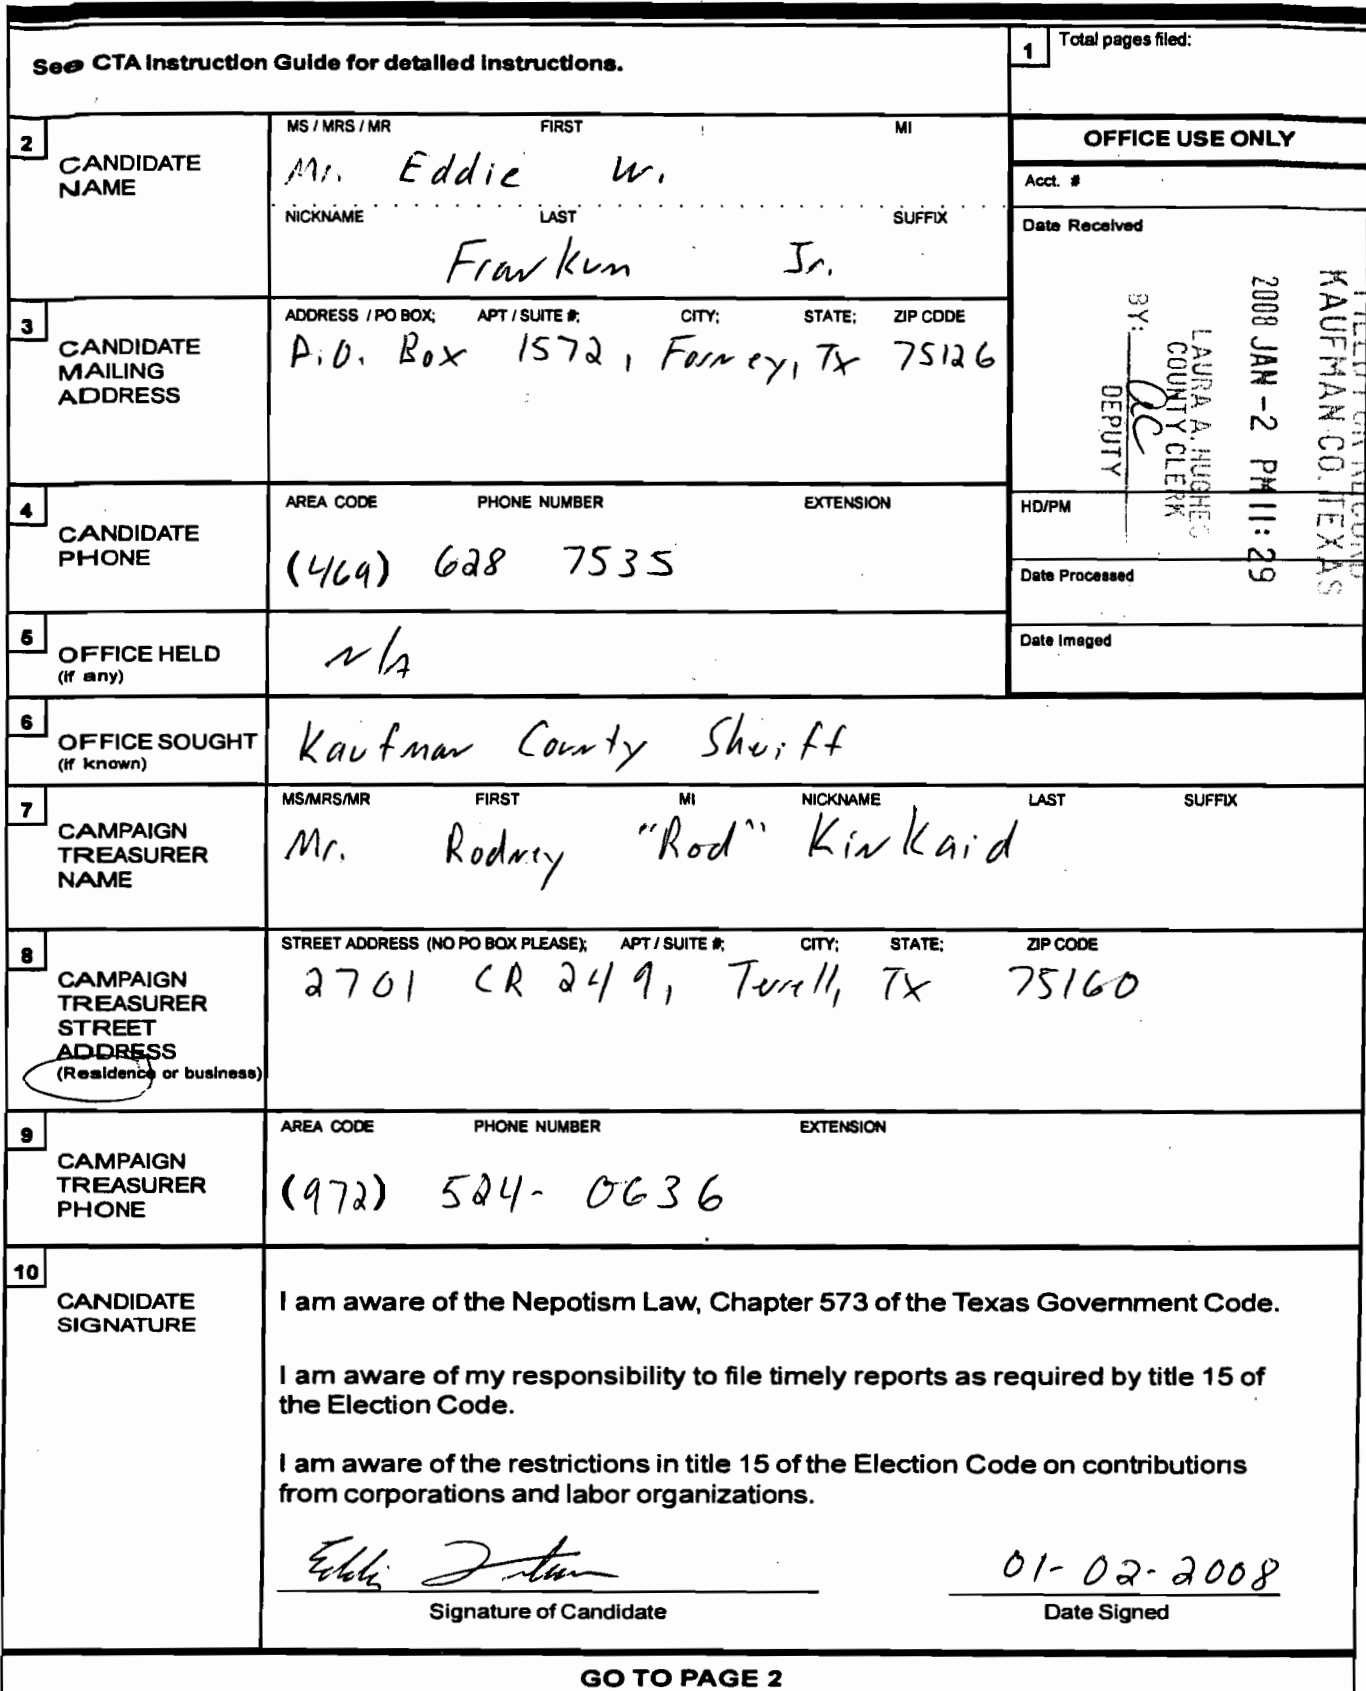 See CTA Instruction Guide for detailed instructions.
1 Total pages filed:
2 CANDIDATE NAME
MS / MRS / MR FIRST MI
Mr. Eddie W.
NICKNAME LAST SUFFIX
Frankum Jr.
OFFICE USE ONLY
Acct. #
Date Received
KAUFMAN CO. TEXAS
2008 JAN -2 PM 11: 29
LAURA A. HUGHES
COUNTY CLERK
BY: ac
DEPUTY
HD/PM
Date Processed
Date Imaged
3 CANDIDATE MAILING ADDRESS
ADDRESS / PO BOX; APT / SUITE #; CITY; STATE; ZIP CODE
P.O. Box 1572, Forney, Tx 75126
4 CANDIDATE PHONE
AREA CODE PHONE NUMBER EXTENSION
(469) 628 7535
5 OFFICE HELD (if any)
N/A
6 OFFICE SOUGHT (if known)
Kaufman County Sheriff
7 CAMPAIGN TREASURER NAME
MS/MRS/MR FIRST MI NICKNAME LAST SUFFIX
Mr. Rodney "Rod" Kinkaid
8 CAMPAIGN TREASURER STREET ADDRESS (Residence or business)
STREET ADDRESS (NO PO BOX PLEASE); APT / SUITE #; CITY; STATE; ZIP CODE
2701 CR 249, Terrell, Tx 75160
9 CAMPAIGN TREASURER PHONE
AREA CODE PHONE NUMBER EXTENSION
(972) 524- 0636
10 CANDIDATE SIGNATURE
I am aware of the Nepotism Law, Chapter 573 of the Texas Government Code.
I am aware of my responsibility to file timely reports as required by title 15 of
the Election Code.
I am aware of the restrictions in title 15 of the Election Code on contributions
from corporations and labor organizations.
Eddie
01-02-2008
Signature of Candidate Date Signed
GO TO PAGE 2